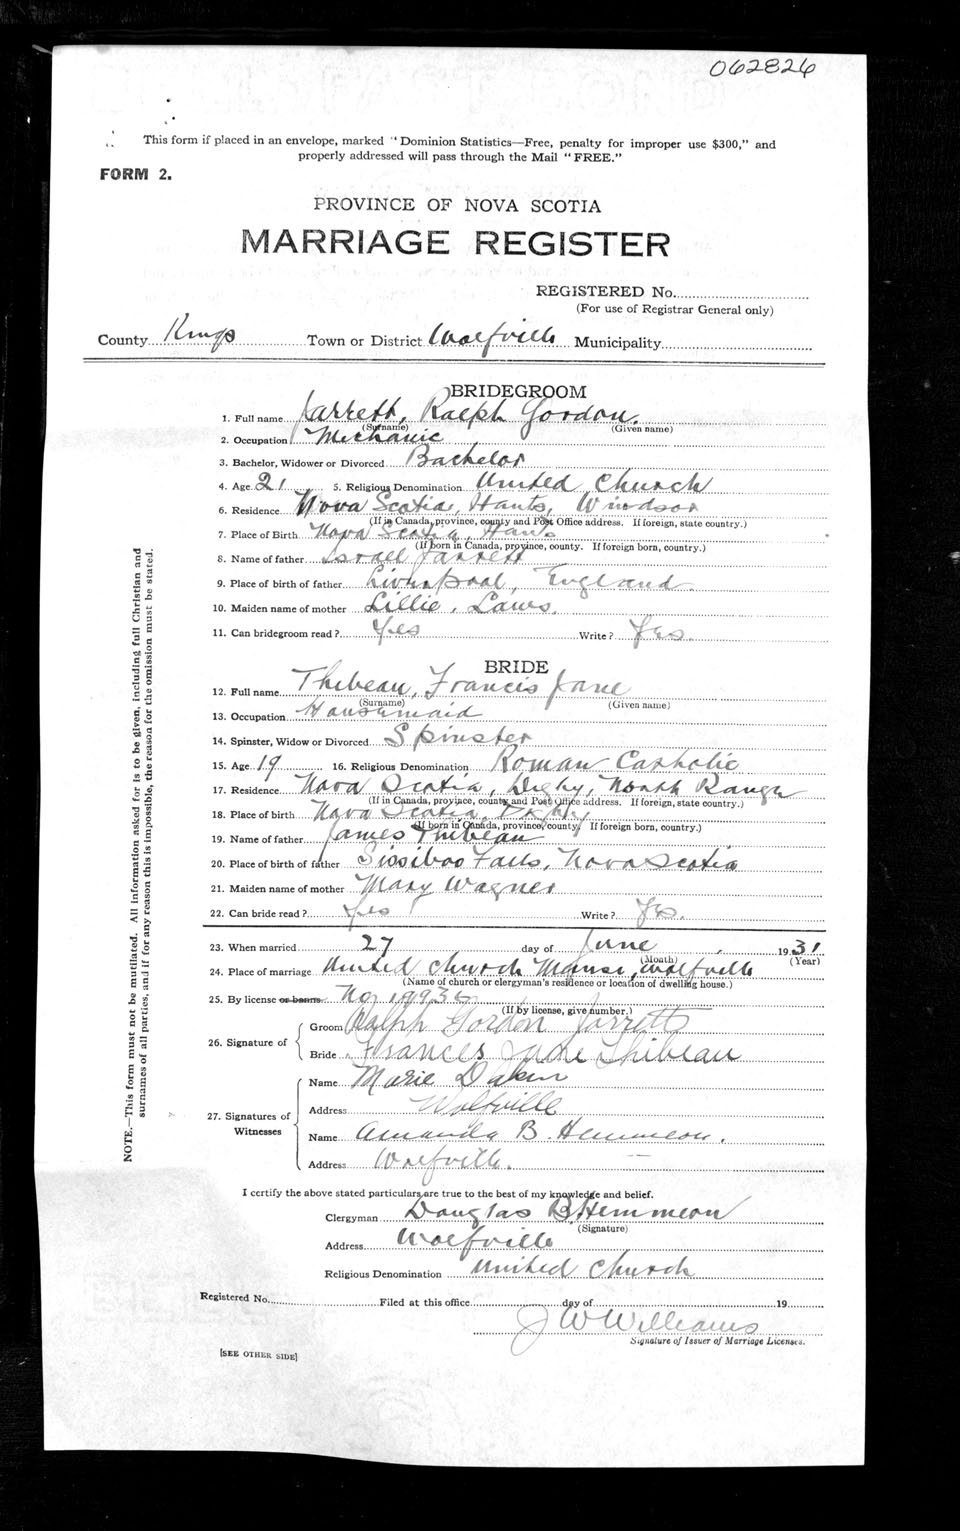 062826
This form if placed in an envelope, marked "Dominion Statistics—Free, penalty for improper use $300," and
properly addressed will pass through the Mail "FREE."
FORM 2.
PROVINCE OF NOVA SCOTIA
MARRIAGE REGISTER
REGISTERED No.
(For use of Registrar General only)
County Kings Town or District Wolfville Municipality
BRIDEGROOM
1. Full name Jarrett, Ralph Gordon.
(Surname) (Given name)
2. Occupation Mechanic
3. Bachelor, Widower or Divorced Bachelor
4. Age 21 5. Religious Denomination United Church
6. Residence Nova Scotia, Hants, Windsor
(If in Canada, province, county and Post Office address. If foreign, state country.)
7. Place of Birth Nova Scotia, Hants
(If born in Canada, province, county. If foreign born, country.)
8. Name of father Israel Jarrett
9. Place of birth of father Liverpool, England.
10. Maiden name of mother Lillie, Laws.
11. Can bridegroom read? Yes Write? Yes.
BRIDE
12. Full name Thibeau, Francis Jane
(Surname) (Given name)
13. Occupation Housemaid
14. Spinster, Widow or Divorced Spinster
15. Age 19 16. Religious Denomination Roman Catholic
17. Residence Nova Scotia, Digby, North Range
(If in Canada, province, county and Post Office address. If foreign, state country.)
18. Place of birth Nova Scotia, Digby
(If born in Canada, province, county. If foreign born, country.)
19. Name of father James Thibeau
20. Place of birth of father Sissiboo Falls, Nova Scotia
21. Maiden name of mother Mary Wagner
22. Can bride read? Yes Write? Yes.
23. When married 27 day of June, 1931
(Month) (Year)
24. Place of marriage United Church Manse, Wolfville
(Name of church or clergyman's residence or location of dwelling house.)
25. By license or banns No.
(If by license, give number.)
26. Signature of
Groom Ralph Gordon Jarrett
Bride Frances Jane Thibeau
27. Signatures of Witnesses
Name Marie Dakin
Address Wolfville
Name Amanda B. Hemmeon.
Address Wolfville.
I certify the above stated particulars are true to the best of my knowledge and belief.
Clergyman Douglas B. Hemmeon
(Signature)
Address Wolfville
Religious Denomination United Church
Registered No. Filed at this office day of 19
J W Williams
Signature of Issuer of Marriage Licenses.
[SEE OTHER SIDE]
NOTE.—This form must not be mutilated. All information asked for is to be given, including full Christian and
surnames of all parties, and if for any reason this is impossible, the reason for the omission must be stated.